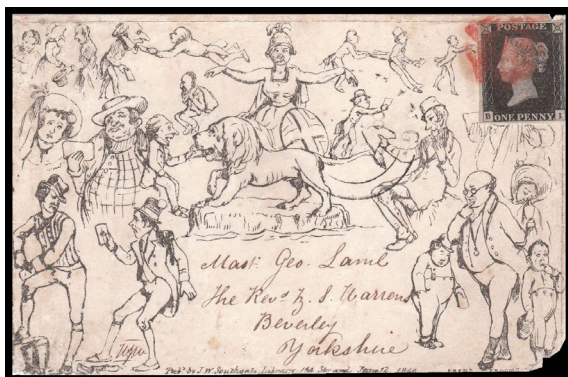 POSTAGE
ONE PENNY
Mastr. Geo. Lamb
The Revd. Z. S. Warrens
Beverley
Yorkshire
Pubd. by J. W. Southgate, Library, 164 Strand, June 12 1840